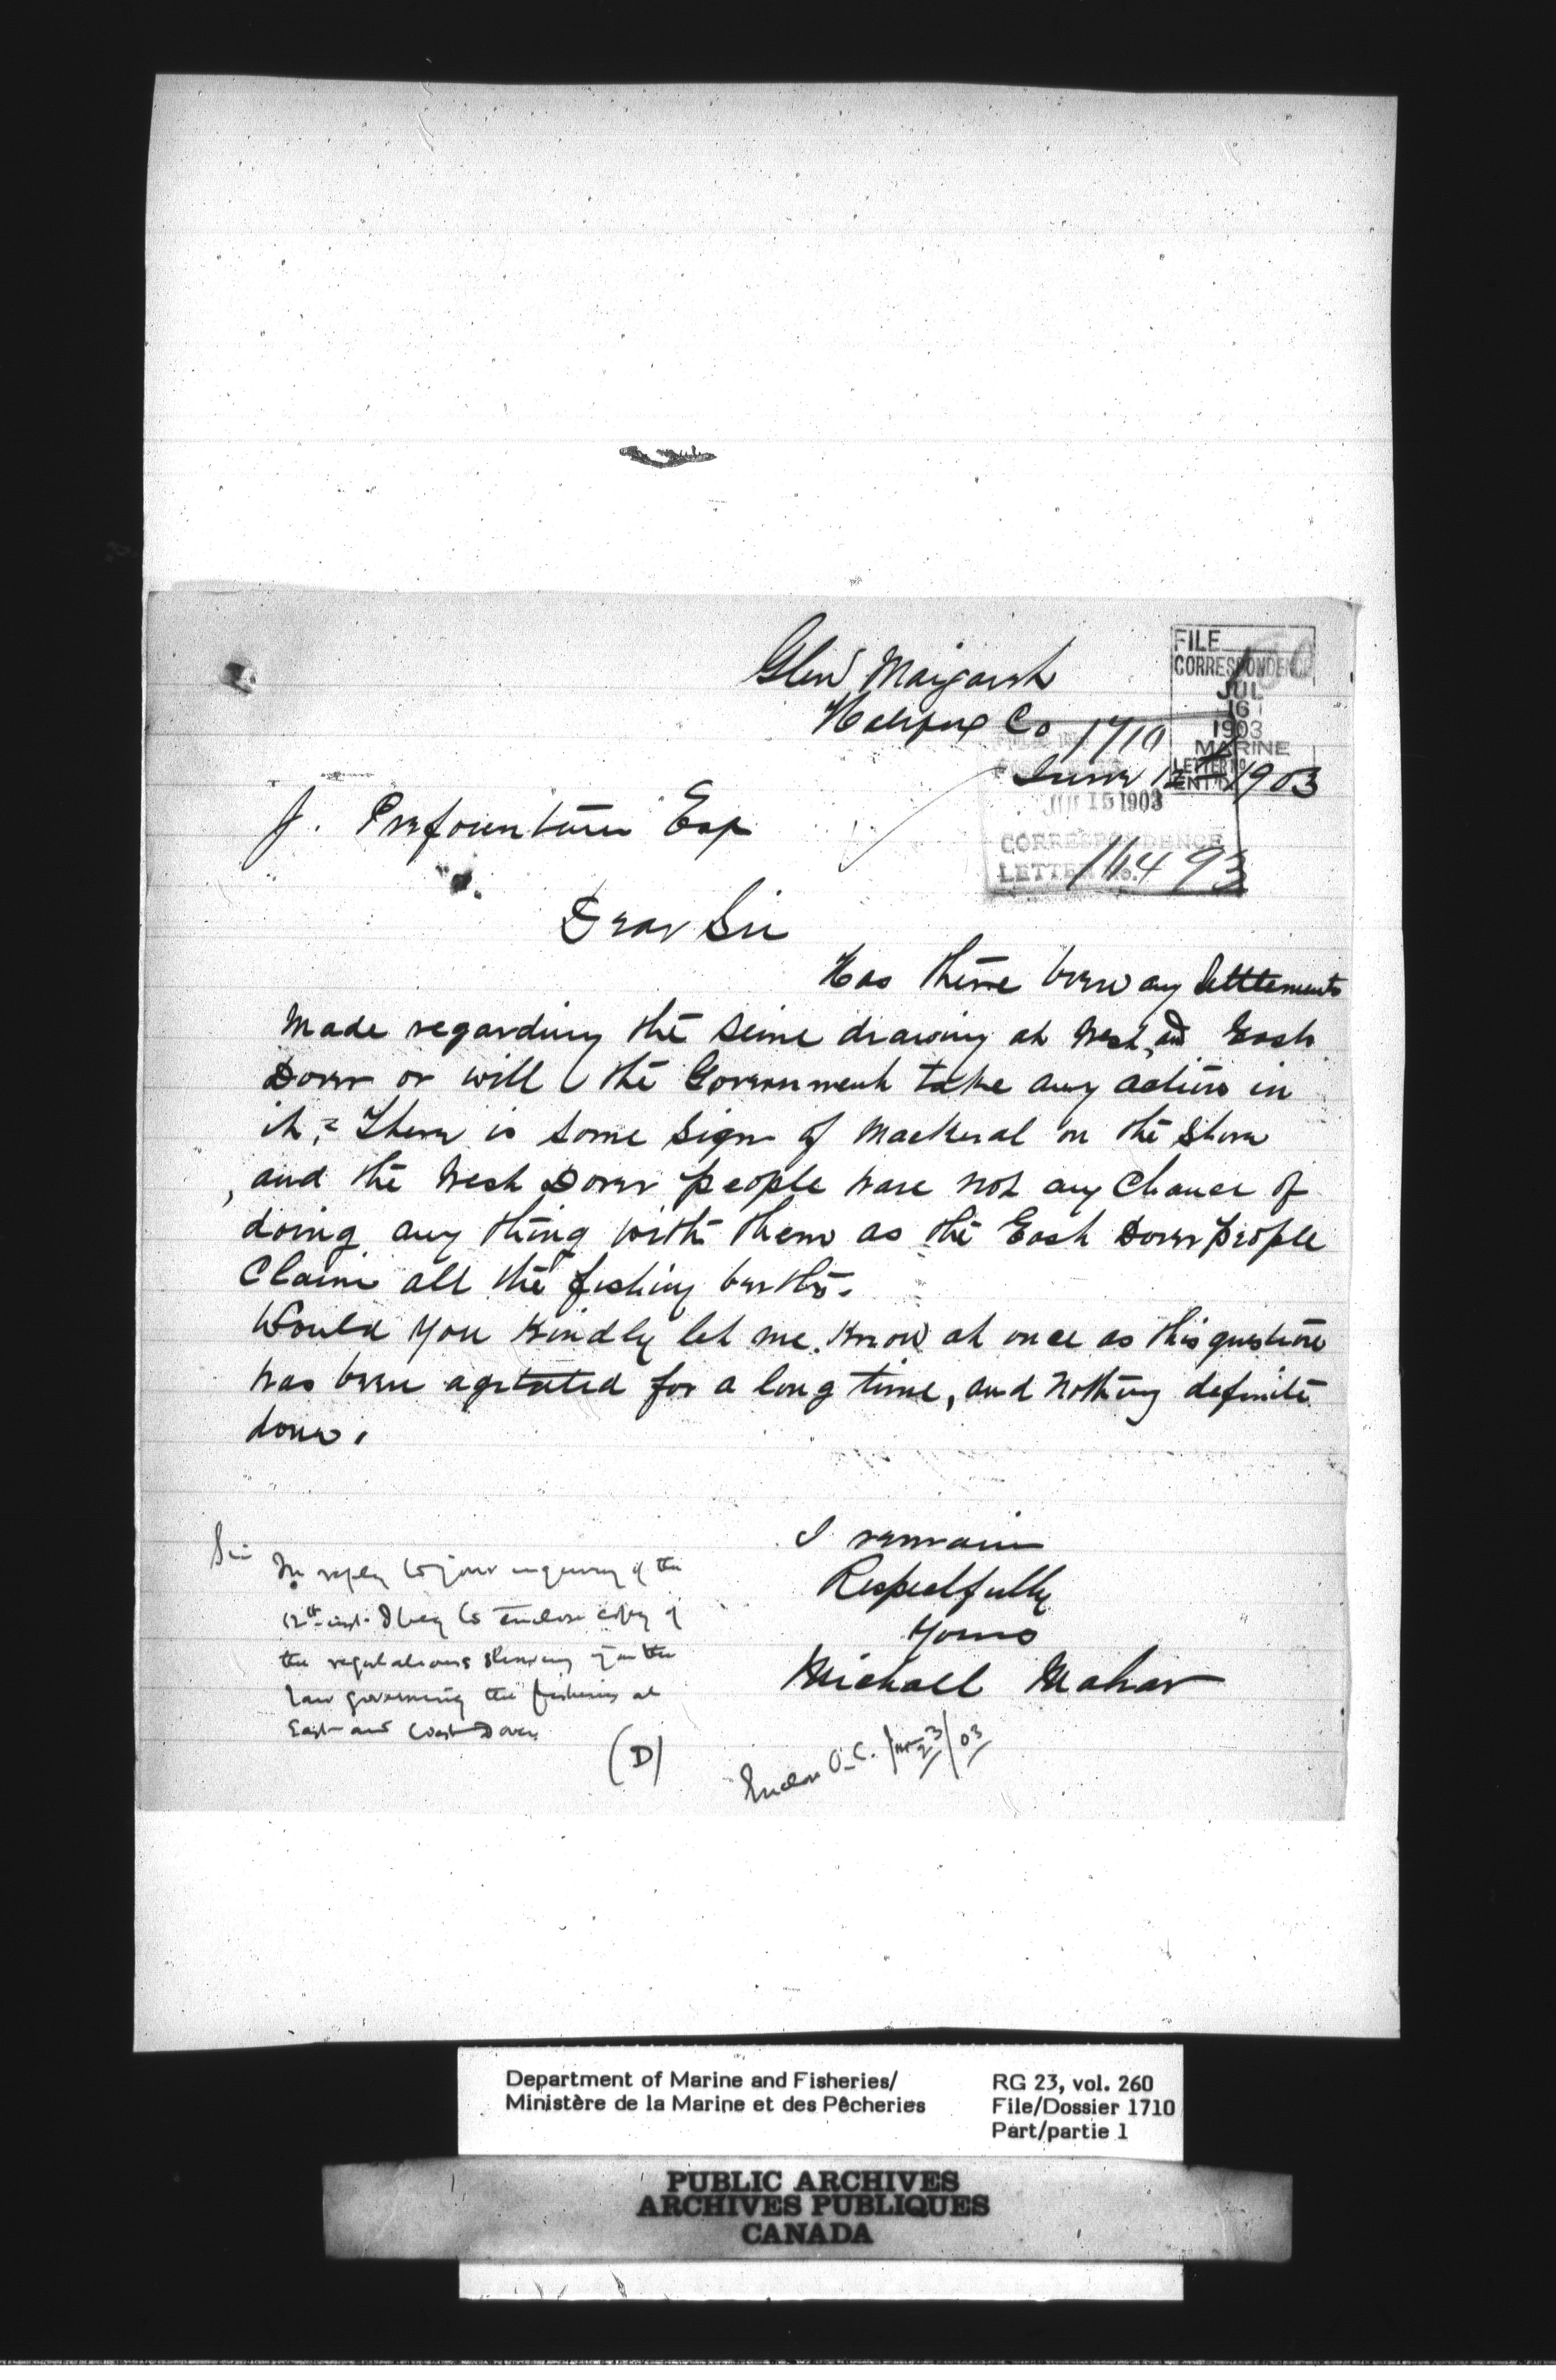 Glen Margarh
Halifax Co
FILE
CORRESPONDENCE
JUL
16
1903
MARINE
LETTER No
ENT'D
1710
June 12th 1903
JUL 15 1903
CORRESPONDENCE
LETTER No.
J. Prefountain Esq
Dear Sir
Has there been any Settlements
Made regarding the Seine drawing at West and East
Dover or will the Government take any action in
it, There is some sign of Mackeral on the Shore
and the West Dover people have not any Chance of
doing any thing with them as the East Dover people
Claim all the fishing berths.
Would you kindly let me Know at once as this question
has been agitated for a long time, and nothing definite
done.
I remain
Respectfully
Yours
Michael Mahar
Sir
In reply to your inquiry of the
12th inst. I beg to enclose copy of
the regulations
law governing the fisheries at
East and West Dover
(D)
Enclose O.C. 23/03
Department of Marine and Fisheries/
Ministère de la Marine et des Pêcheries
RG 23, vol. 260
File/Dossier 1710
Part/partie 1
PUBLIC ARCHIVES
ARCHIVES PUBLIQUES
CANADA